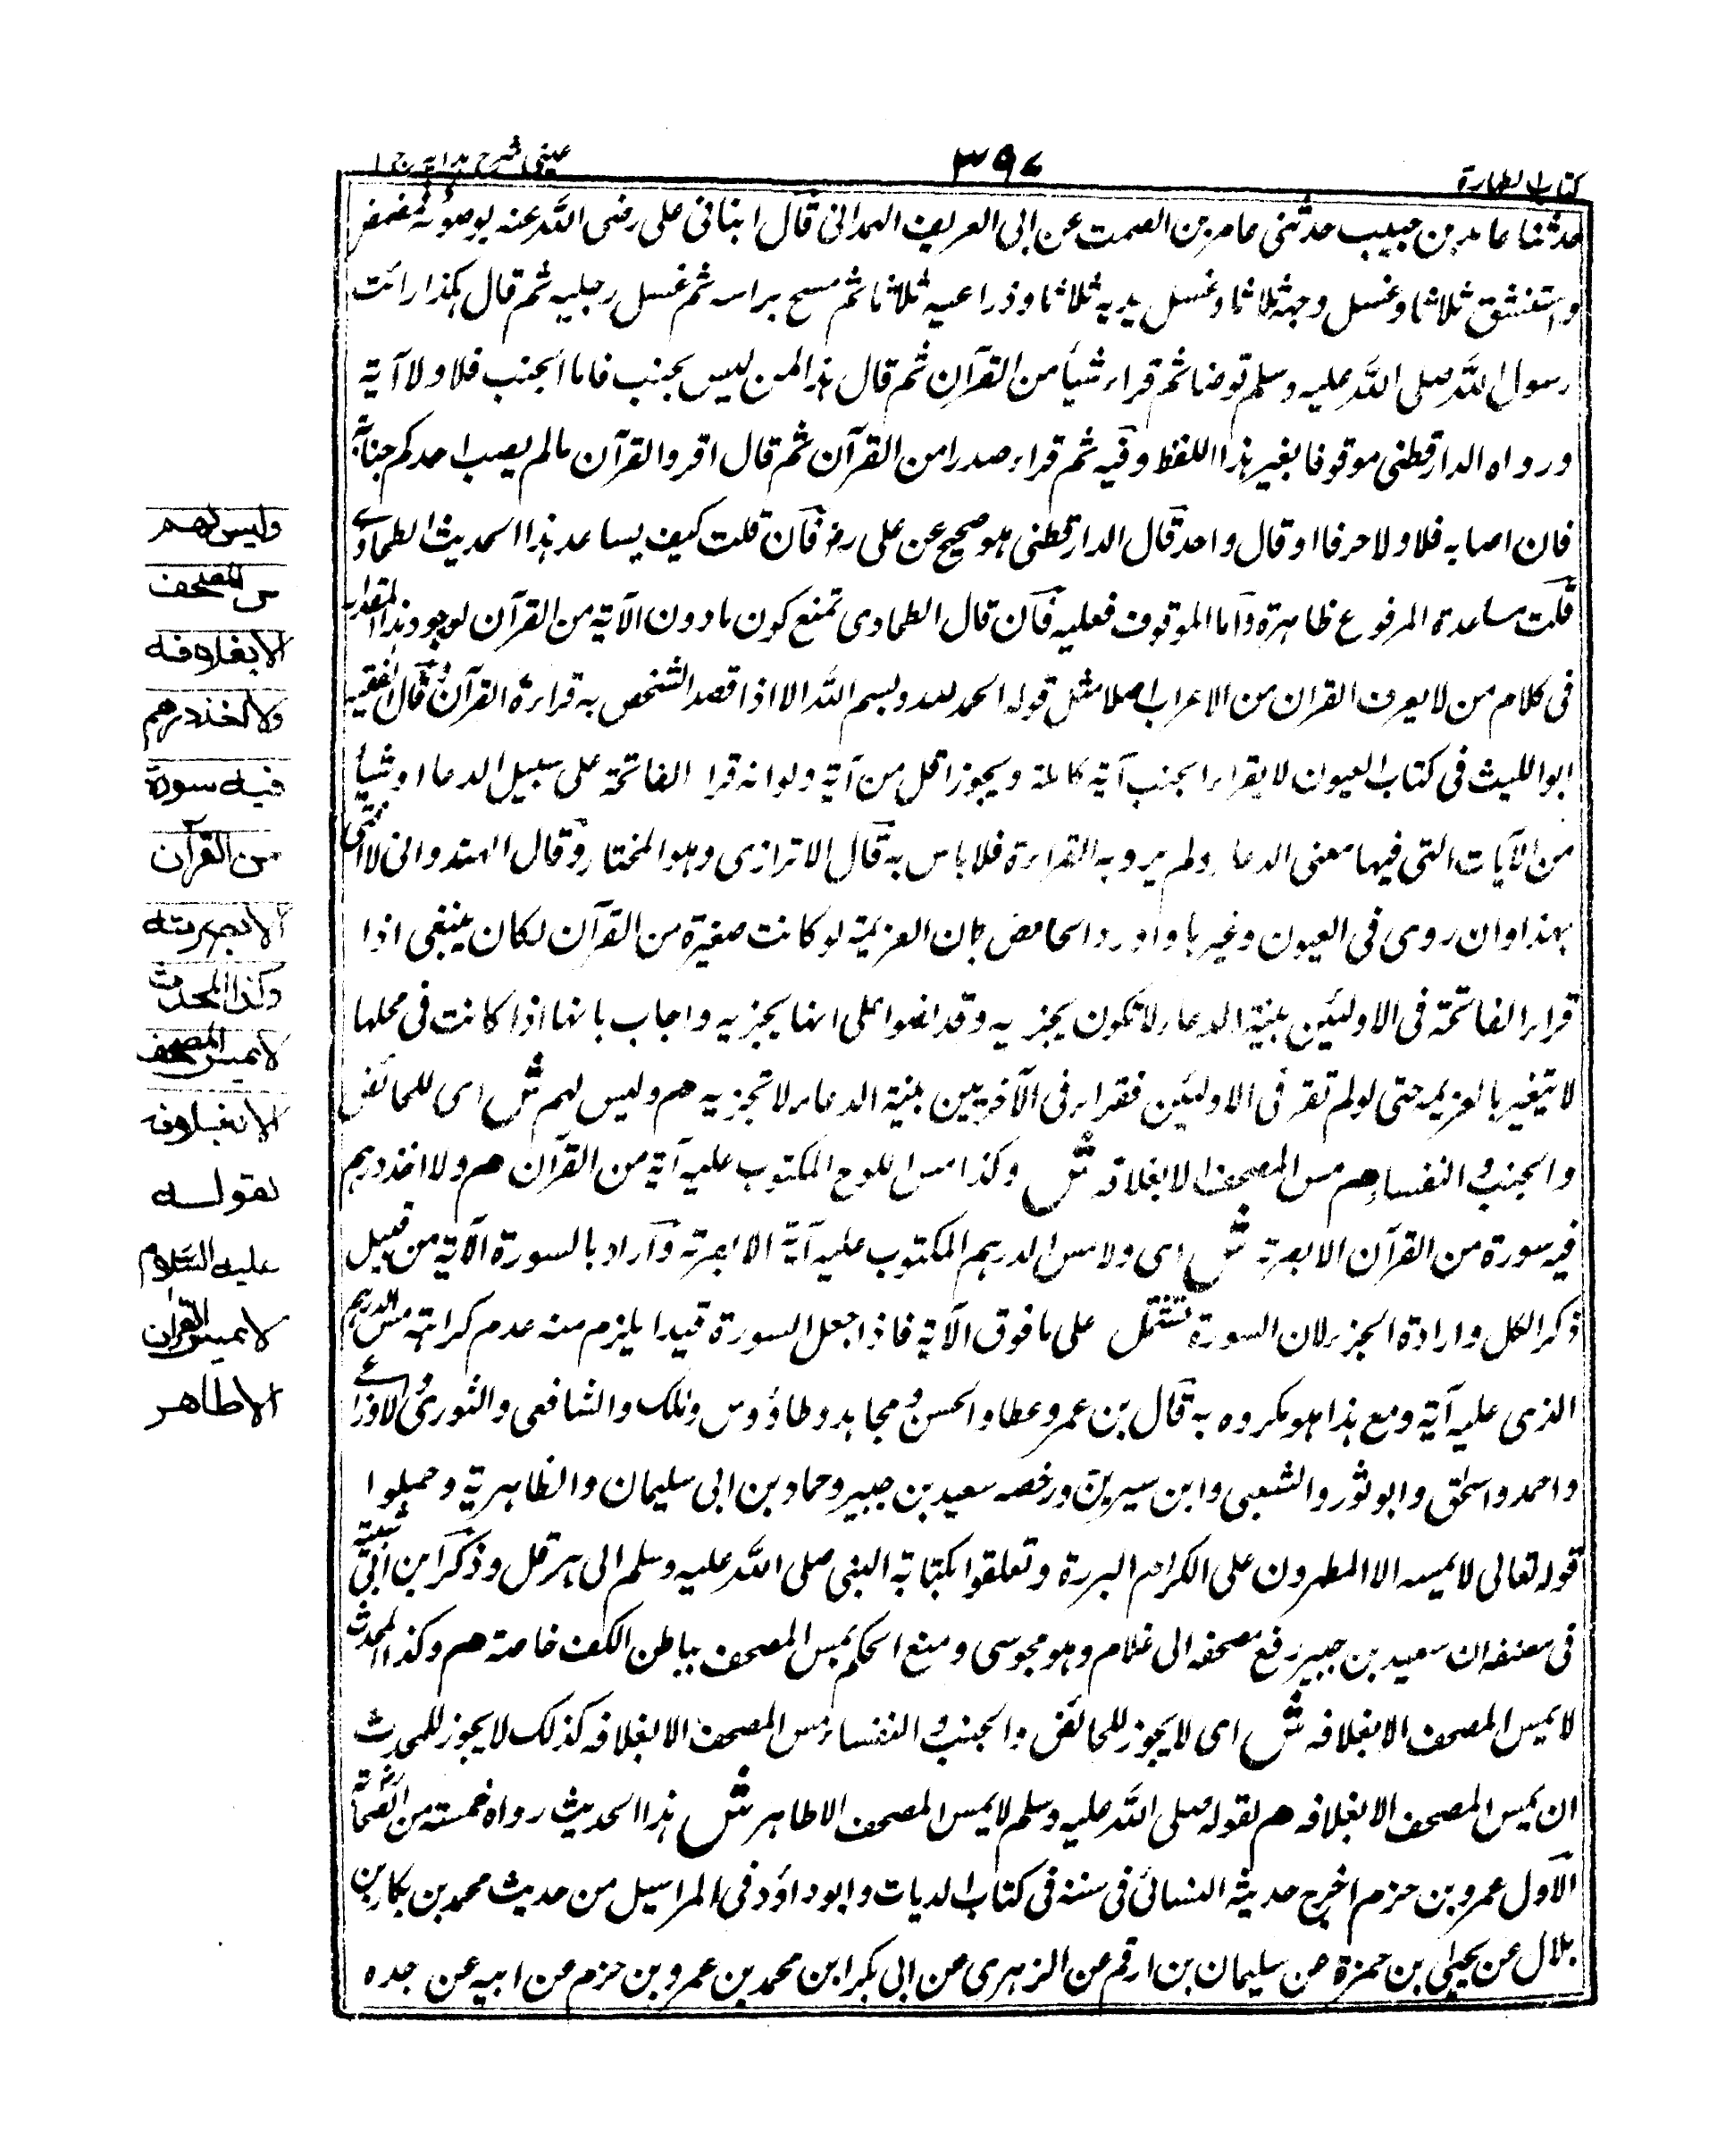 كتاب الطهارة
٣٩٧
عينى شرح هداية ج ١
حدثنا عايد بن حبيب حدثنى عامر بن الصمت عن ابى العريف الهمدانى قال ابنانى على رضى الله عنه بوضوئه فمضمض
واستنشق ثلاثا وغسل وجهه ثلاثا وغسل يديه ثلاثا وذراعيه ثلاثا ثم مسح براسه ثم غسل رجليه ثم قال هكذا رائت
رسول الله صلى الله عليه وسلم توضا ثم قراء شيأ من القرآن ثم قال هذا لمن ليس بجنب فاما الجنب فلا ولا آية
ورواه الدارقطنى موقوفا بغير هذا اللفظ وفيه ثم قراء صدرا من القرآن ثم قال اقروا القرآن مالم يصب احدكم جنابة
فان اصابه فلا ولا حرفا او قال واحد قال الدارقطنى هو صحيح عن على رض فان قلت كيف يساعد هذا الحديث الطحاوى
قلت مساعدة المرفوع ظاهرة واما الموقوف فعليه فان قال الطحاوى تمنع كون مادون الآية من القرآن لوجود هذا المقدار
فى كلام من لا يعرف القران من الاعراب اصلا مثل قوله الحمد لله وبسم الله الا اذا قصد الشخص به قراءة القرآن وقال الفقيه
ابو الليث فى كتاب العيون لا يقراء الجنب آية كاملة ويجوز اقل من آية ولو انه قرا الفاتحة على سبيل الدعا او شيأ
من الآيات التى فيها معنى الدعا ولم يرد به القراءة فلا باس به قال الاترازى وهو المختار وقال الهندوانى لا افتى
بهذا وان روى فى العيون وغيرها واورد الحامض بان العزيمة لو كانت صغيرة من القرآن لكان ينبغى اذا
قراء الفاتحة فى الاوليين بنية الدعاء لا تكون يجزيه وقد نصوا على انها يجزيه واجاب بانها اذا كانت فى محلها
لا يتغير بالعزيمه حتى لو لم تقر فى الاوليين فقراء فى الآخريين بنية الدعاء لا تجزيه هم وليس لهم ش اى للحائض
والجنب والنفساء هم مس المصحف الا بغلافه ش وكذا مس اللوح المكتوب عليه آية من القرآن هم ولا اخذ درهم
فيه سورة من القرآن الا بصرته ش اى ولا مس الدرهم المكتوب عليه آية الا بصرته واراد بالسورة الآية من قبيل
ذكر الكل وارادة الجزء لان السورة تشتمل على ما فوق الآية فاذا جعل السورة قيدا يلزم منه عدم كراهته مس الدرهم
الذى عليه آية ومع هذا هو مكروه به قال بن عمر وعطا والحسن ومجاهد وطاؤوس ومالك والشافعى والثورى والاوزاعى
واحمد واسحق وابو ثور والشعبى وابن سيرين ورخصه سعيد بن جبير وحماد بن ابى سليمان والظاهرية وحملوا
قوله تعالى لا يمسه الا المطهرون على الكرام البررة وتعلقوا بكتابة النبى صلى الله عليه وسلم الى هرقل وذكر ابن ابى شيبة
فى مصنفه ان سعيد بن جبير رفع مصحفه الى غلام وهو مجوسى ومنع الحكم بمس المصحف بباطن الكف خاصة هم وكذا المحدث
لا يمس المصحف الا بغلافه ش اى لا يجوز للحائض والجنب والنفساء مس المصحف الا بغلافه كذلك لا يجوز للمحدث
ان يمس المصحف الا بغلافه هم لقوله صلى الله عليه وسلم لا يمس المصحف الا طاهر ش هذا الحديث رواه خمسة من الصحابة رض
الاول عمرو بن حزم اخرج حديثه النسائى فى سننه فى كتاب الديات وابو داؤد فى المراسيل من حديث محمد بن بكار بن
بلال عن يحيى بن حمزة عن سليمان بن ارقم عن الزهرى عن ابى بكر ابن محمد بن عمرو بن حزم عن ابيه عن جده
وليس لهم
مس المصحف
الا بغلافه
ولا اخذ درهم
فيه سورة
من القرآن
الا بصرته
وكذا المحدث
لا يمس المصحف
الا بغلافه
لقوله
عليه السلام
لا يمس القرآن
الا طاهر